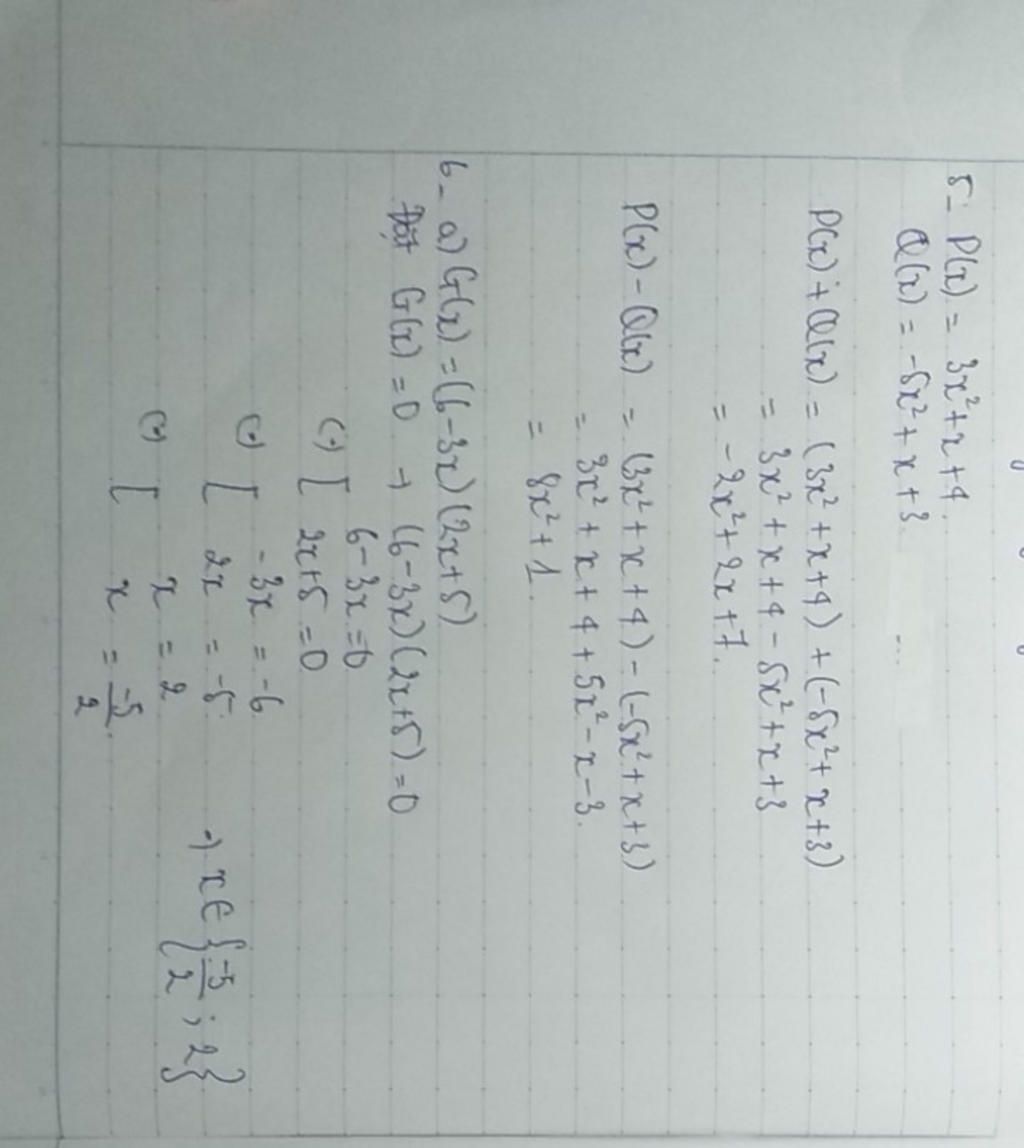 5- P(x) = 3x² + x + 4.
Q(x) = -5x² + x + 3.
...
P(x) + Q(x) = (3x² + x + 4) + (-5x² + x + 3)
= 3x² + x + 4 - 5x² + x + 3
= -2x² + 2x + 7.
P(x) - Q(x) = (3x² + x + 4) - (-5x² + x + 3)
= 3x² + x + 4 + 5x² - x - 3.
= 8x² + 1.
6- a) G(x) = (6-3x)(2x+5)
Đặt G(x) = 0 → (6-3x)(2x+5) = 0
(-) [ 6-3x = 0
2x+5 = 0
(-) [ -3x = -6
2x = -5.
(-) [ x = 2
x = -5/2.
-) x ∈ {-5/2 ; 2}